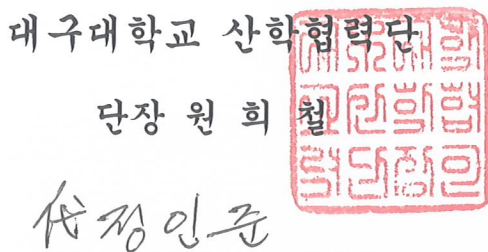 대구대학교 산학협력단
단장 원 희 철
代 정인준